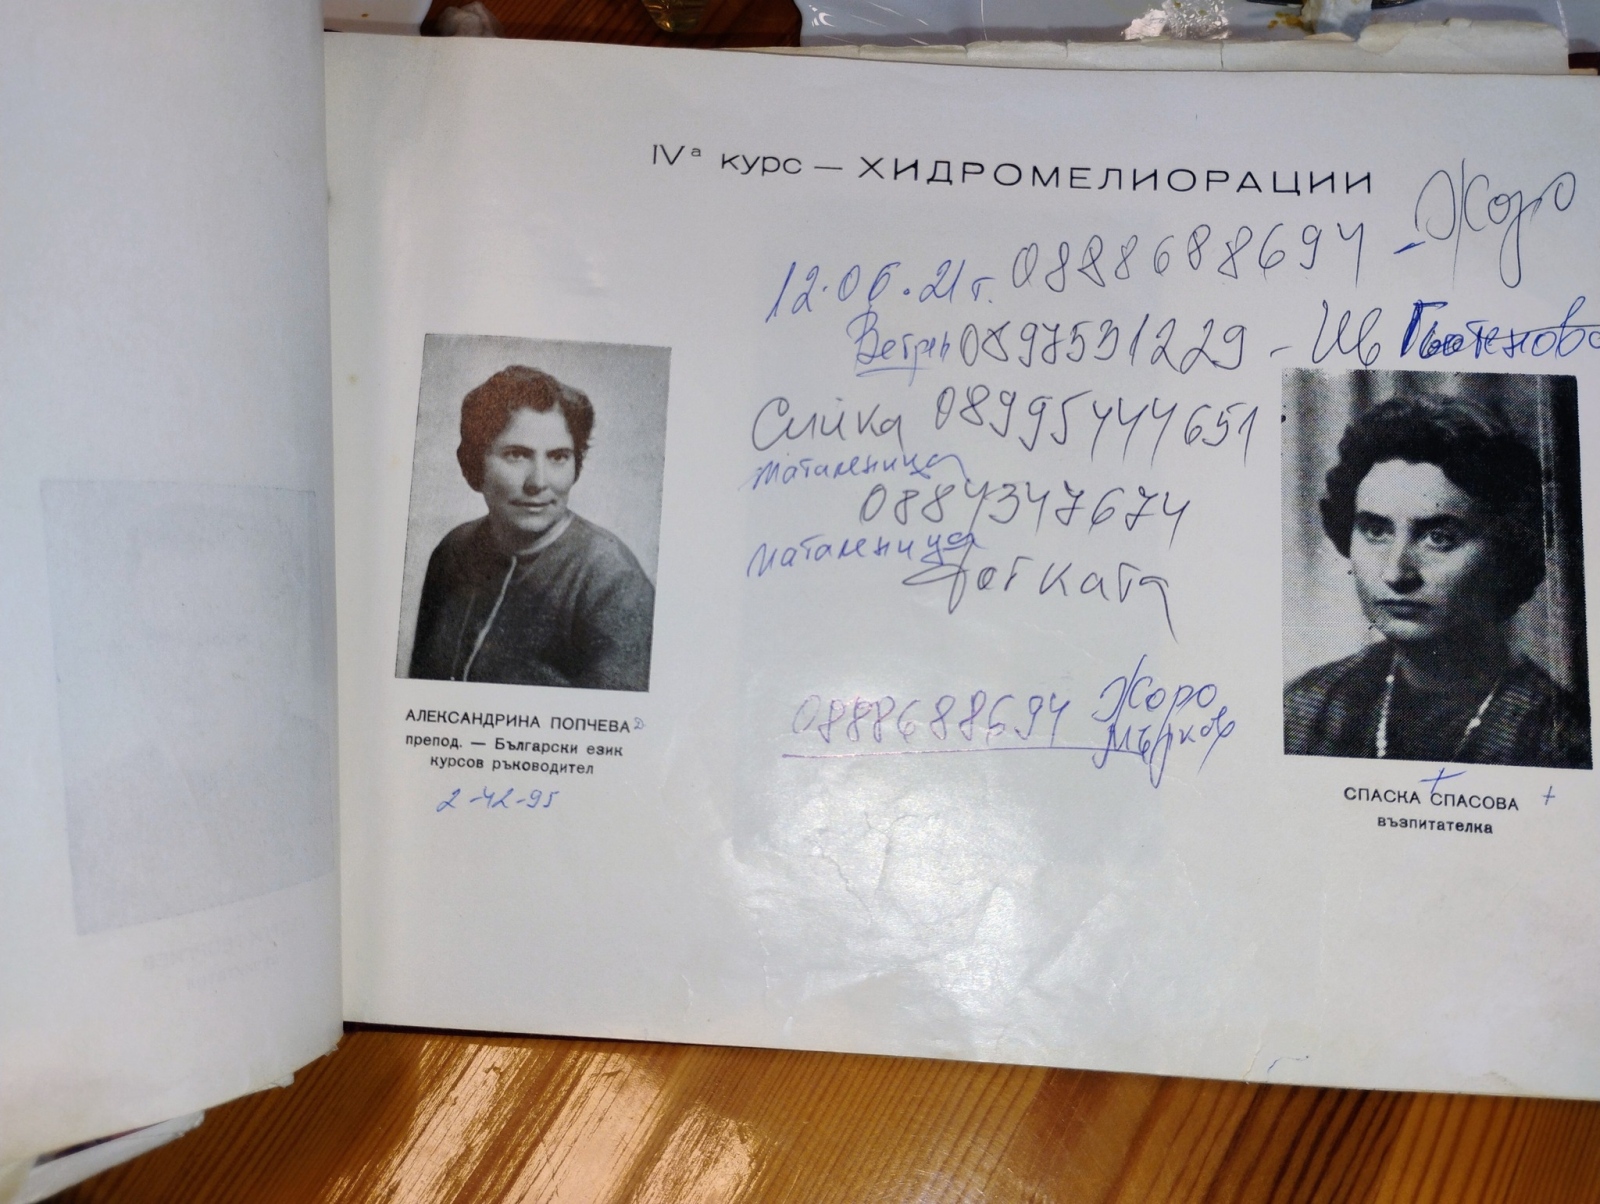 IVª курс — ХИДРОМЕЛИОРАЦИИ
12.06.21 г. 0888688694 - Жоро
Ветрен 0897531229 - Ив
Слика 08995444651
Маталеница
0884347674
Маталеница
Фот Ката
0888688694 Жоро
Мърков
АЛЕКСАНДРИНА ПОПЧЕВА
препод. — Български език
курсов ръководител
2-42-95
СПАСКА СПАСОВА +
възпитателка